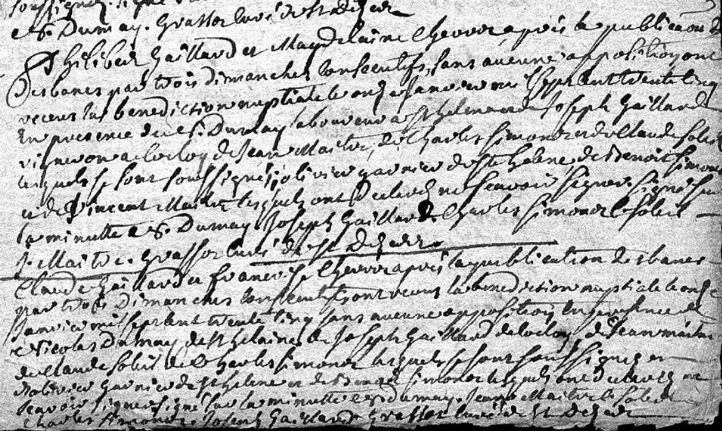 e S. Dumay. Grasset curé de St Desert
Philibert Gaillard et Magdelaine Chevrot apres la publication
des bans par trois dimanches consecutifs, sans aucune apposition ont
receus la benediction nuptiale le onze janvier mil sept cent trente cinq
en presence de S. Dumay laboureur a St helene de Joseph Gaillard
vigneron a de Jean Maitre, de Charles Simonot et de Claude
lesquels se sont soussignes olivier garnier de St helene de Benoit Simonot
et de Vincent Maitre lesquels ont declares ne scavoir signer signé sur
la minutte e S. Dumay Joseph Gaillard Charles Simonot
J. Maitre. Grasset curé de St Desert.
Claude Gaillard et francoise Chevrot apres la publication des bans
par trois Dimanches consecutifs ont receus la benediction nuptiale le onze
janvier mil sept cent trente cinq sans aucune apposition en presence de
Nicolas Dumay de St helaine de Joseph Gaillard de Jean maitre
de Claude de Charles Simonot lesquels se sont soussignes et
olivier garnier de St helene et de Simonot lesquels ont declares ne
scavoir signer signé sur la minutte e S. Dumay. Jean Maitre
Charles Simonot. Joseph Gaillard Grasset curé de St Desert